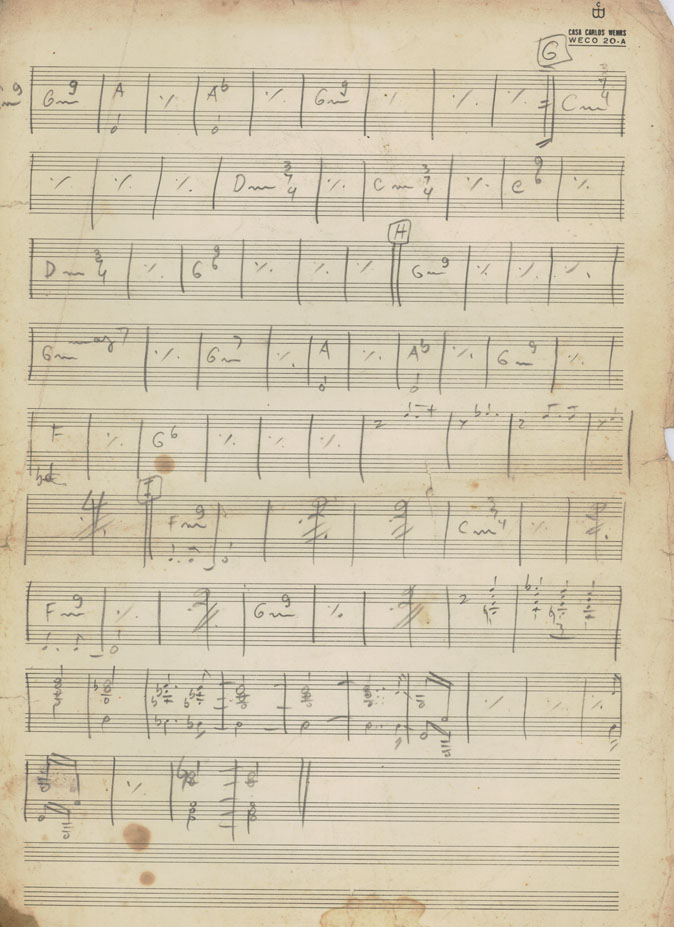 CASA CARLOS WEHRS
WECO 20-A
G
m9 Gm9 A ٪ Ab ٪ Gm9 ٪ ٪ ٪ Cm 7 4
٪ ٪ ٪ Dm 3 7 4 ٪ Cm 3 7 4 ٪ C 9 6 ٪
H
Dm 3 7 4 ٪ G 9 6 ٪ ٪ ٪ Gm9 ٪ ٪ ٪
Gm maj7 ٪ Gm7 ٪ A ٪ Ab ٪ Gm9 ٪
F ٪ G6 ٪ ٪ ٪ 2 2
I
4 Fm9 2 2 Cm 3 4 ٪ 2
Fm9 ٪ 2 Gm9 ٪ 2 2
3